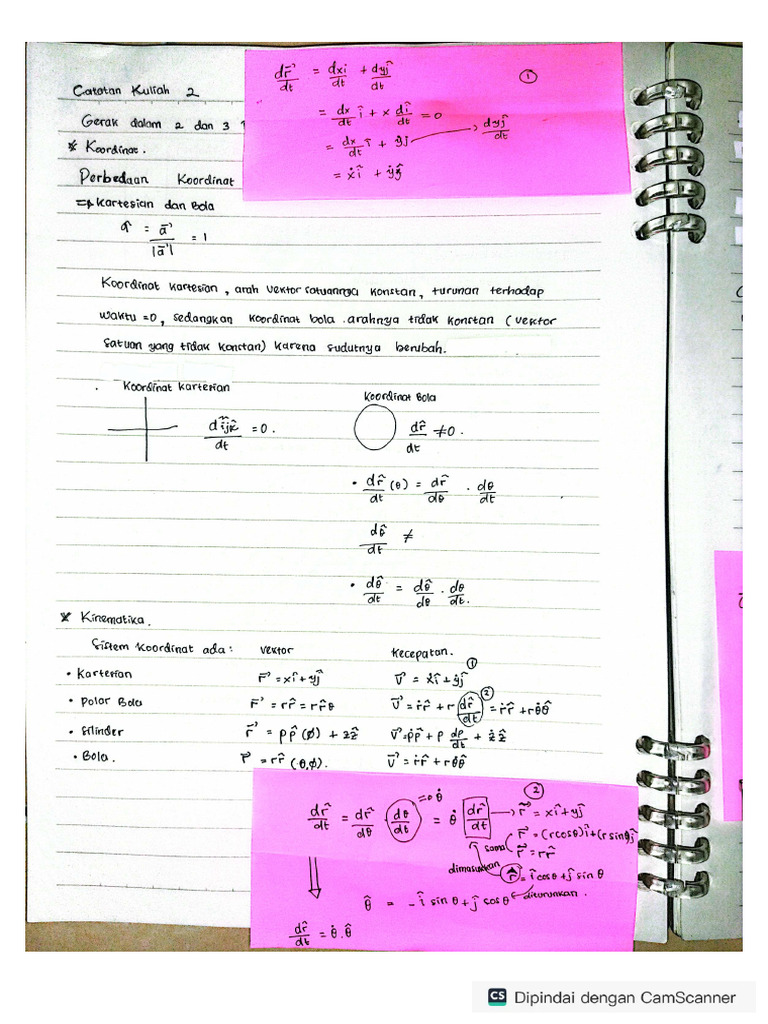 Catatan Kuliah 2
Gerak dalam 2 dan 3
* Koordinat.
Perbedaan Koordinat
=> Kartesian dan Bola
r̂ = a⃗ / |a⃗| = 1
①
dr⃗/dt = dxî/dt + dyĵ/dt
= dx/dt î + x dî/dt = 0
= dx/dt î + ẏĵ → dyĵ/dt
= ẋî + ẏĵ
Koordinat kartesian, arah vektor satuannya konstan, turunan terhadap
waktu = 0, sedangkan koordinat bola arahnya tidak konstan (vektor
satuan yang tidak konstan) karena sudutnya berubah.
. Koordinat kartesian
dîĵk̂/dt = 0.
Koordinat Bola
dr̂/dt ≠ 0.
• dr̂/dt (θ) = dr̂/dθ . dθ/dt
dθ̂/dt ≠
• dθ̂/dt = dθ̂/dθ . dθ/dt.
* Kinematika.
Sistem koordinat ada: Vektor Kecepatan.
• Kartesian r⃗ = xî + yĵ v⃗ = ẋî + ẏĵ ①
• Polar Bola r⃗ = rr̂ = rr̂θ v⃗ = ṙr̂ + r dr̂/dt ② = ṙr̂ + rθ̇θ̂
• Silinder r⃗ = ρρ̂(φ) + zẑ v⃗ = ρ̇ρ̂ + ρ dρ/dt + żẑ
• Bola. r⃗ = rr̂(θ,φ). v⃗ = ṙr̂ + rθ̇θ̂
②
dr̂/dt = dr̂/dθ · dθ/dt => θ̇ = θ̇ dr̂/dt → r⃗ = xî + yĵ
r⃗ = (r cosθ)î + (r sinθ)ĵ
sama r⃗ = rr̂
dimasukkan r̂ = î cosθ + ĵ sin θ
θ̂ = -î sin θ + ĵ cos θ ← diturunkan.
dr̂/dt = θ̇.θ̂
CS Dipindai dengan CamScanner